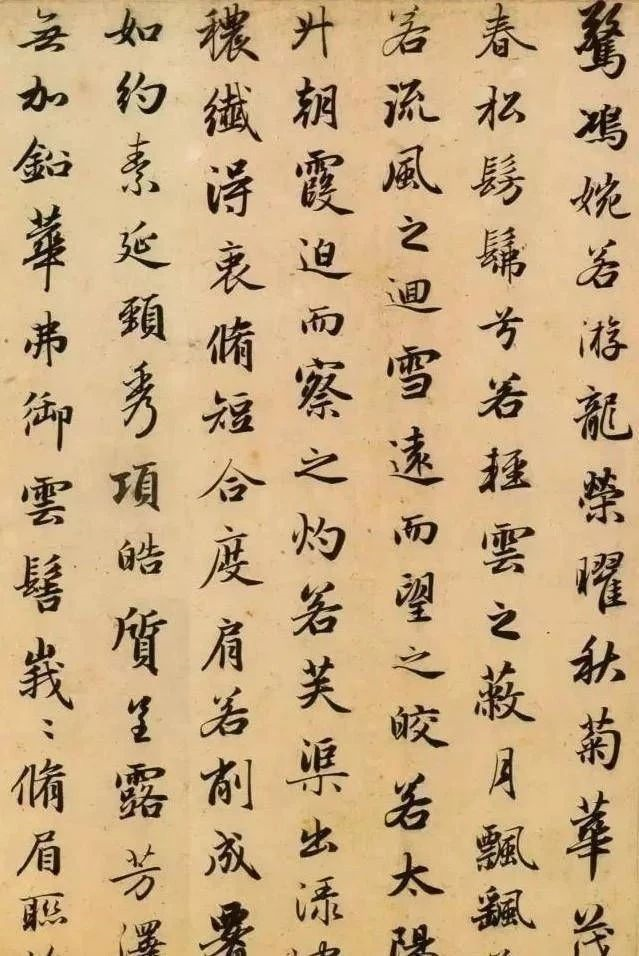 驚鴻婉若游龍榮曜秋菊華茂
春松髣髴兮若輕雲之蔽月飄飖
若流風之迴雪遠而望之皎若太陽
升朝霞迫而察之灼若芙渠出渌
穠纖得衷脩短合度肩若削成署
如約素延頸秀項皓質呈露芳澤
無加鉛華弗御雲髻峩〻脩眉聮